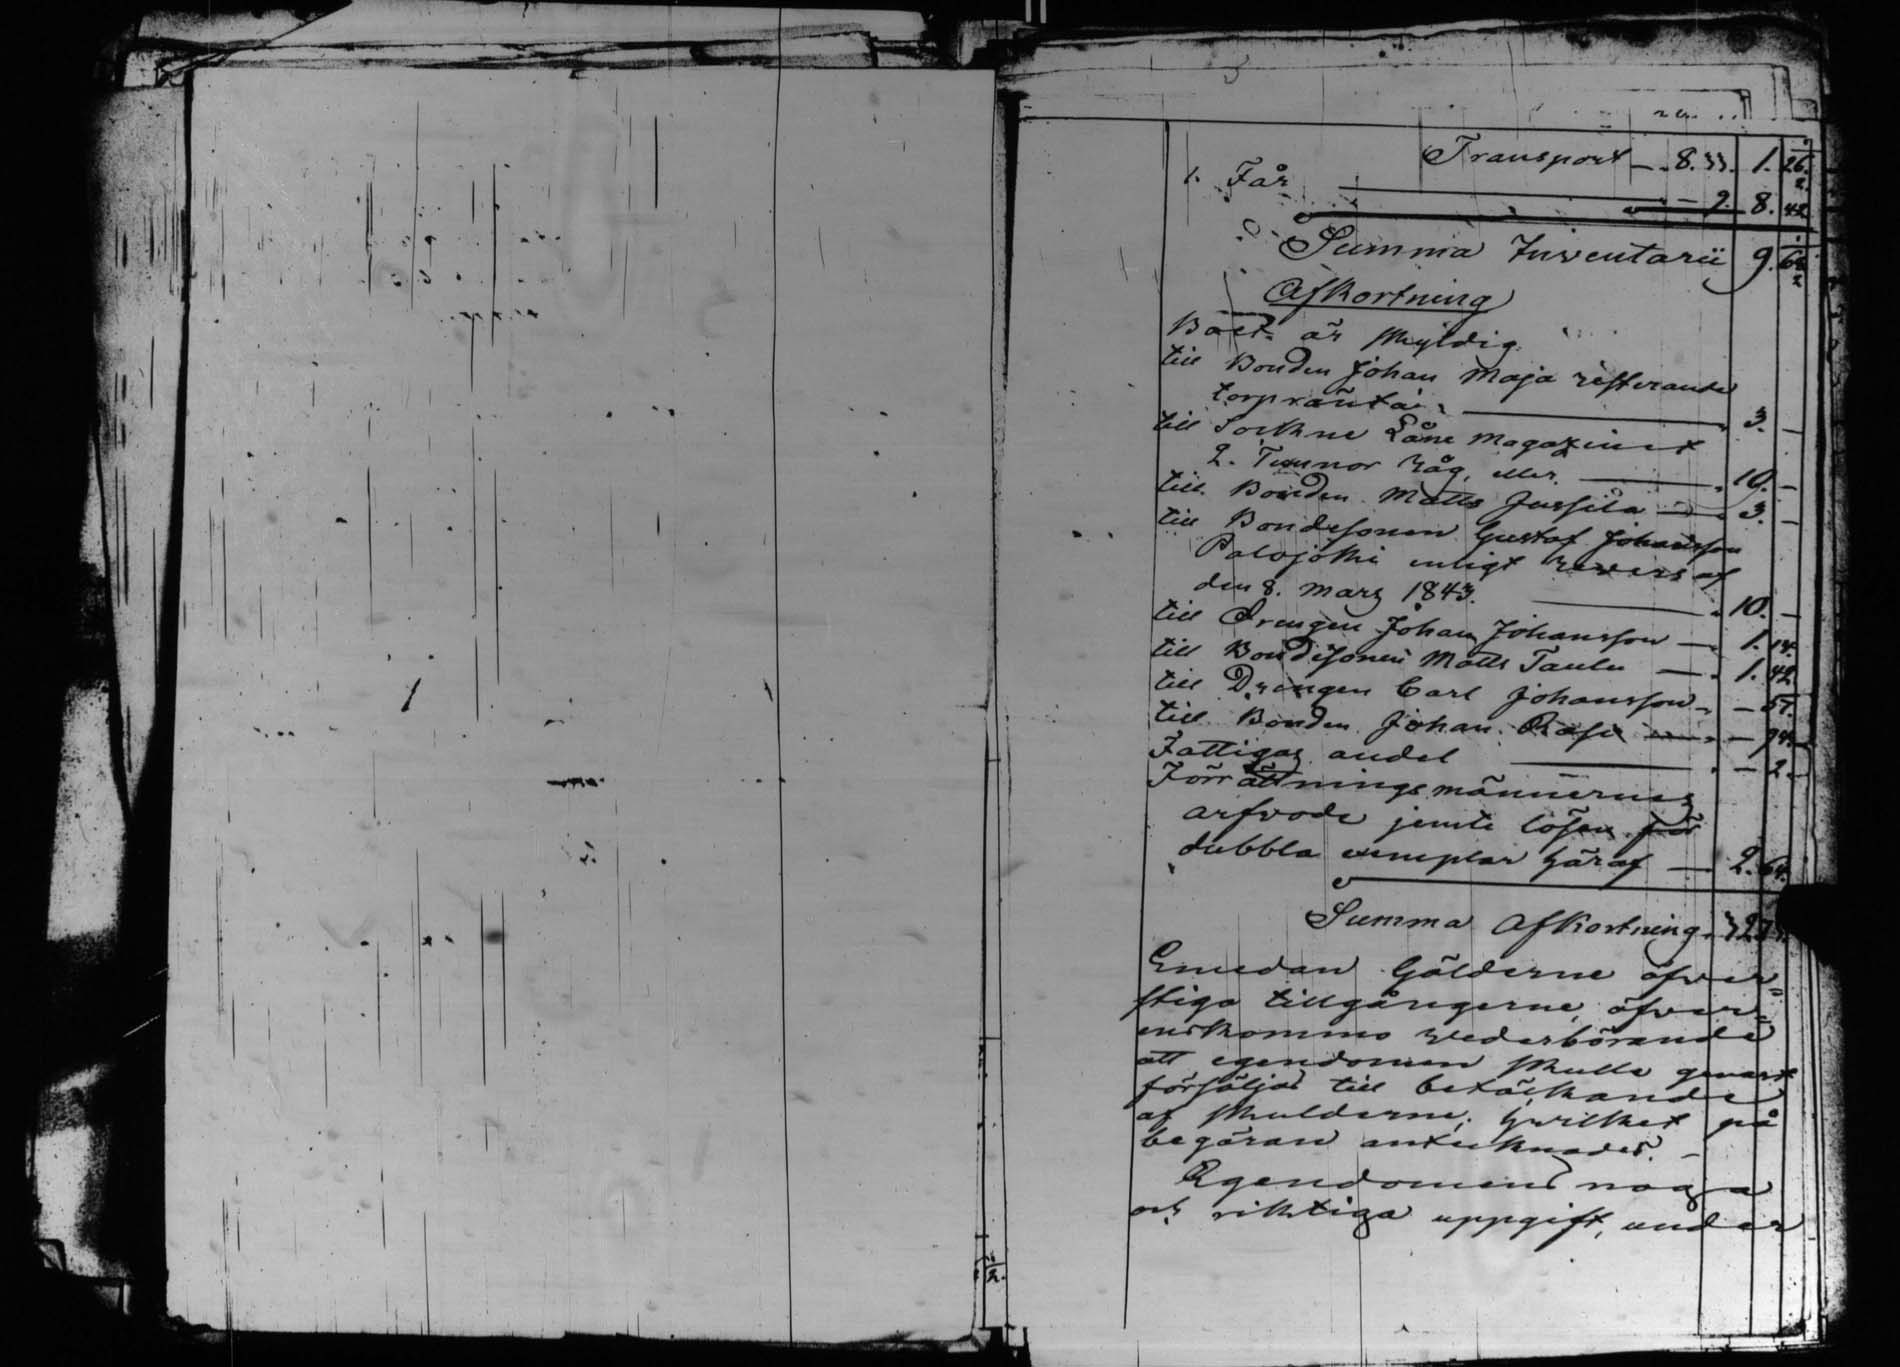 Transport — 8. 33. 1. 26.
1. Får — 9. 8. 42
Summa Inventarii 9. 68
Afkortning
Boet är skyldig
till Bonden Johan Maja resterande
torpränta 3. —
till Sockne Låne Magazinet
2. Tunnor Råg, eller 10. —
till Bonden Matts Jussila 3. —
till Bondesonen Gustaf Johansson
Palojoki enligt revers af
den 8. Mars 1843. 10. —
till Drengen Johan Johansson — 1. 14.
till Bondesonen Matts Taulu — 1. 42.
till Drengen Carl Johansson — 57.
till Bonden Johan
Fattigas andel — 2.
Förrättningsmännernes
arfvode jemte lösen för
dubbla exemplar häraf — 2. 64.
Summa Afkortning
Emedan Gälderne öfver=
stiga tillgångerne, öfver=
enskommo vederbörande
att egendomen skulle genast
försäljas till betäckande
af skulderne; hvilket på
begäran antecknades. —
Egendomens noga
och riktiga uppgift, under